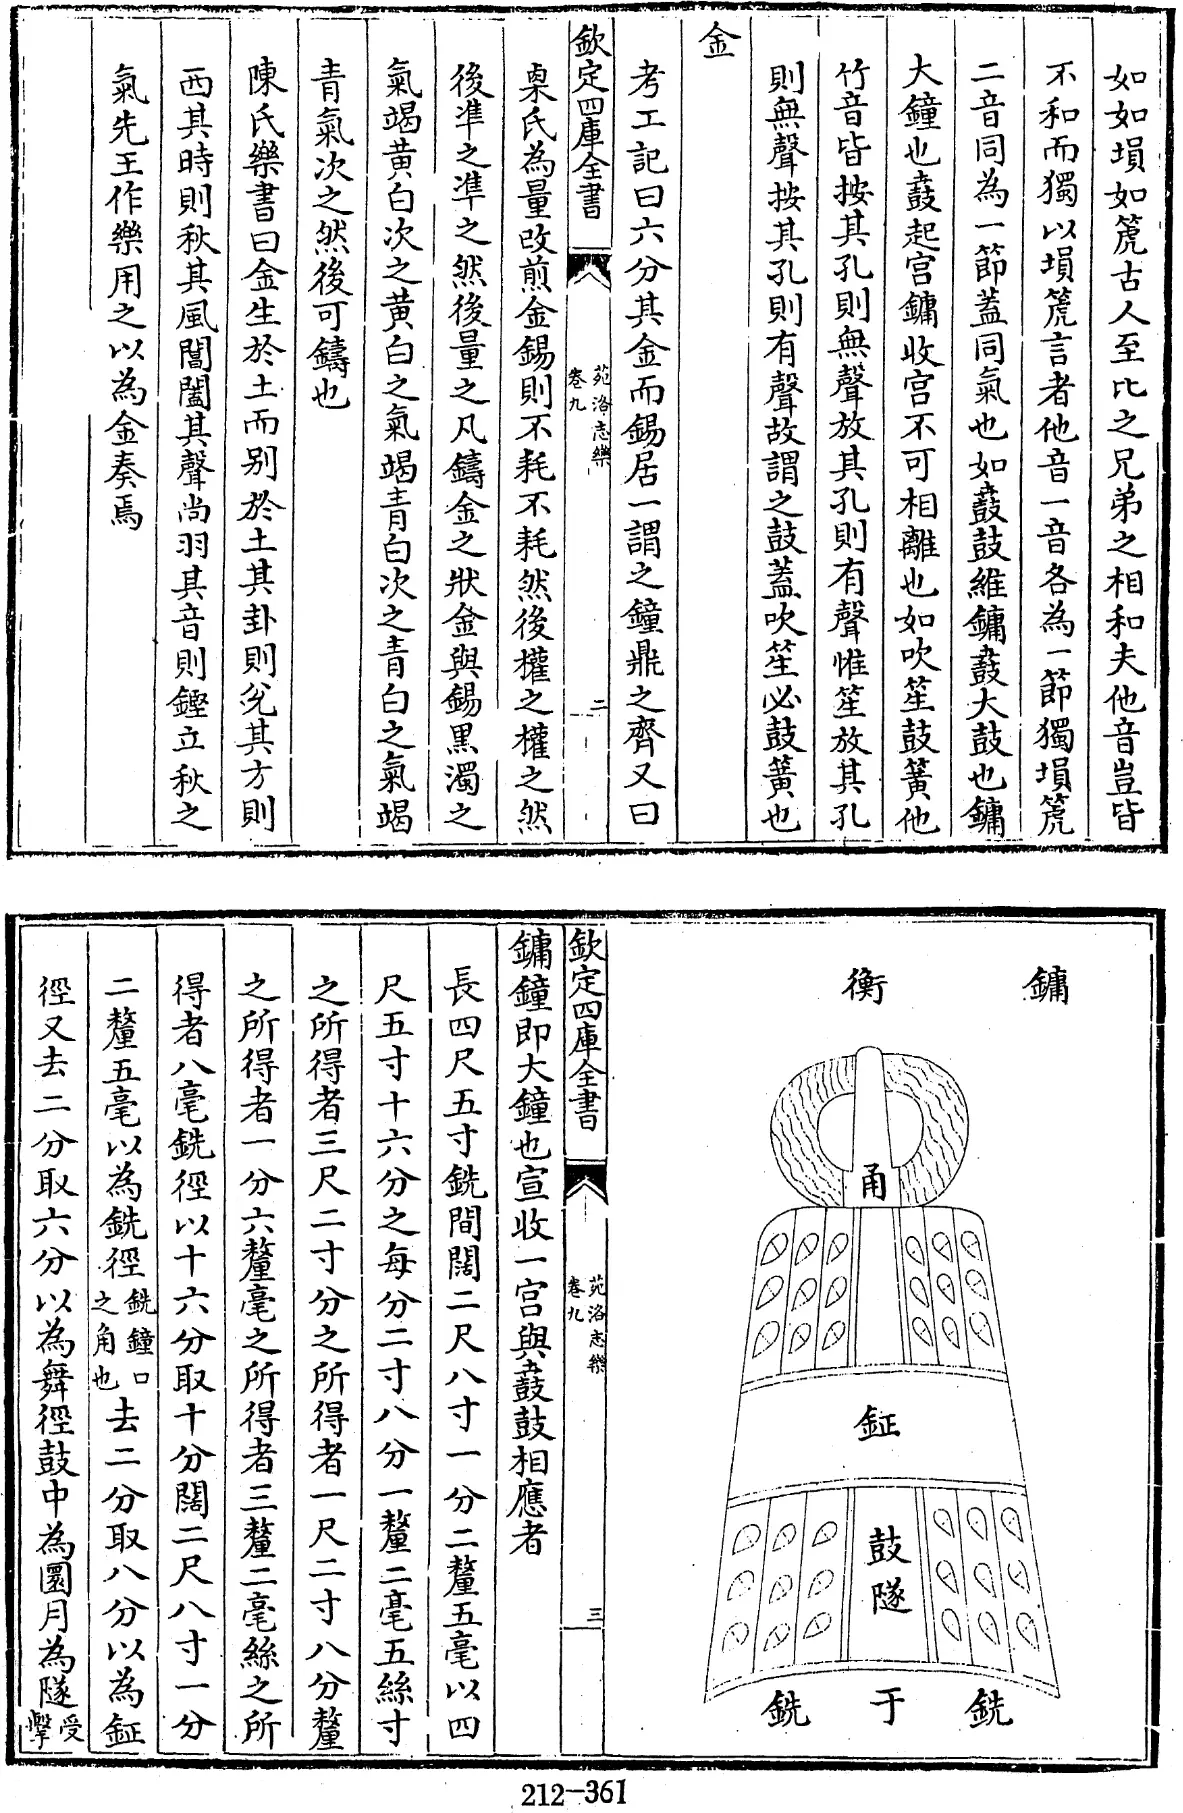 如如塤如箎古人至比之兄弟之相和夫他音豈皆
不和而獨以塤箎言者他音一音各為一節獨塤箎
二音同為一節蓋同氣也如鼖鼓維鏞鼖大鼓也鏞
大鐘也鼖起宫鏞收宫不可相離也如吹笙鼓簧他
竹音皆按其孔則無聲放其孔則有聲惟笙放其孔
則無聲按其孔則有聲故謂之鼓蓋吹笙必鼓簧也
金
考工記曰六分其金而錫居一謂之鐘鼎之齊又曰
欽定四庫全書
苑洛志樂
卷九
二
㮚氏為量改煎金錫則不耗不耗然後權之權之然
後準之準之然後量之凡鑄金之狀金與錫黒濁之
氣竭黄白次之黄白之氣竭青白次之青白之氣竭
青氣次之然後可鑄也
陳氏樂書曰金生於土而别於土其卦則兊其方則
西其時則秋其風閶闔其聲尚羽其音則鏗立秋之
氣先王作樂用之以為金奏焉
鏞
衡
甬
鉦
鼓
隧
銑
于
銑
欽定四庫全書
苑洛志樂
卷九
三
鏞鐘即大鐘也宣收一宫與鼖鼓相應者
長四尺五寸銑間闊二尺八寸一分二釐五毫以四
尺五寸十六分之每分二寸八分一釐二毫五絲寸
之所得者三尺二寸分之所得者一尺二寸八分釐
之所得者一分六釐毫之所得者三釐二毫絲之所
得者八毫銑徑以十六分取十分闊二尺八寸一分
二釐五毫以為銑徑銑鐘口之角也去二分取八分以為鉦
徑又去二分取六分以為舞徑鼓中為圜月為隧受擊
212-361